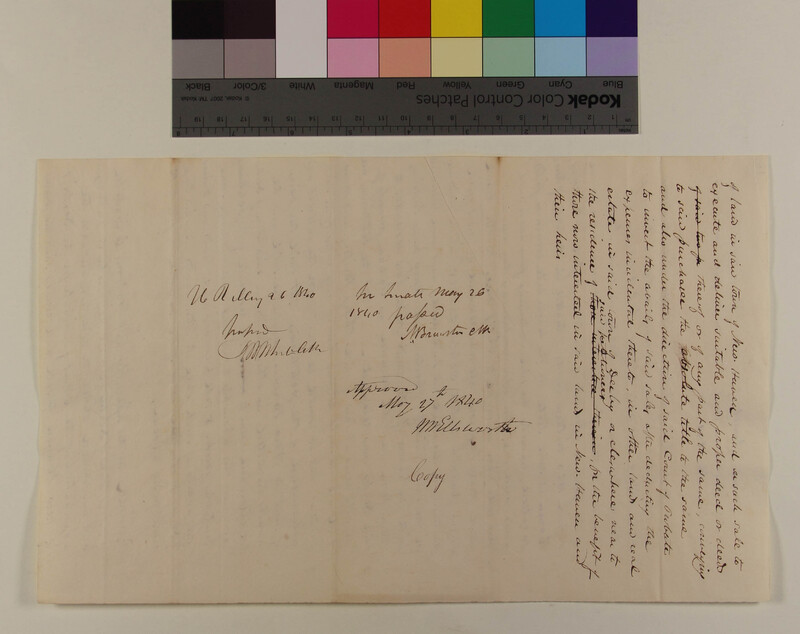 of land in said town of New-Haven, and on such sale to
execute and deliver suitable and proper deed or deeds
of said two p thereof or of any part of the same, conveying
to said purchaser the absolute title to the same
and also under the direction of said Court of Probate
to invest the avails of said sales after deducting the
expenses incidental thereto, in other land and real
estate, in said town of Derby or elsewhere near to
the residence of said petitioners, for the benefit of
those now interested in said land in New-Haven and
their heirs
H R May 26 1840
passed
In Senate May 26
1840 passed
Brewster Clk
Approved
May 27th 1840
W W Ellsworth
Copy
Kodak Color Control Patches
© Kodak, 2007 TM: Kodak
Blue Cyan Green Yellow Red Magenta White 3/Color Black
1 2 3 4 5 6 7 8 9 10 11 12 13 14 15 16 17 18 19